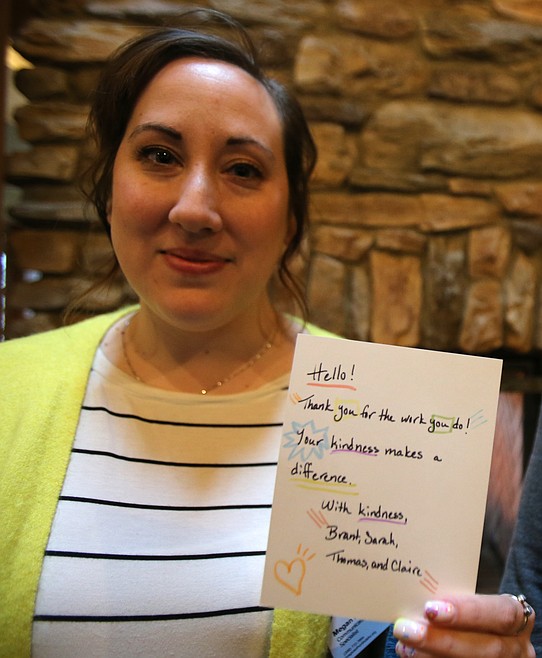 Hello!
Thank you for the work you do!
Your kindness makes a
difference.
With kindness,
Brant, Sarah,
Thomas, and Claire
Megan
Communications
Specialist